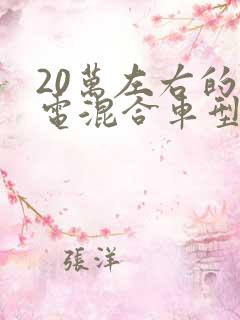 20萬左右的
電混合車型
張洋